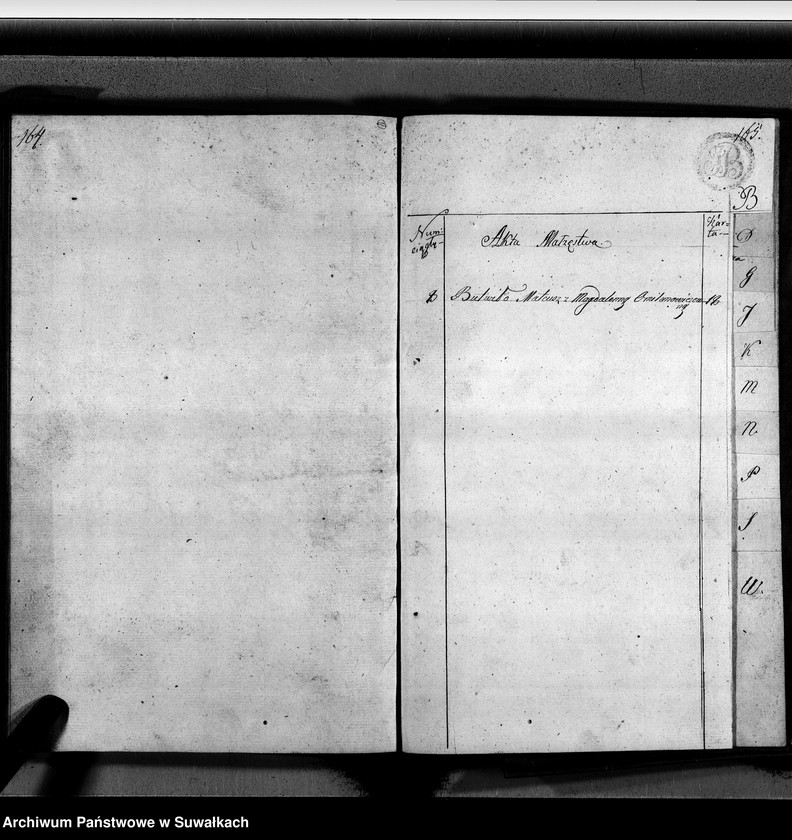 164
155.
B
Num:
ciągły
Akta Małżęstwa
Kar=
ta
8
Butwiło Mateusz z Magdaleną Omilanowiczow
ną
D
G
J
K
M
N
P
S
W.
Archiwum Państwowe w Suwałkach